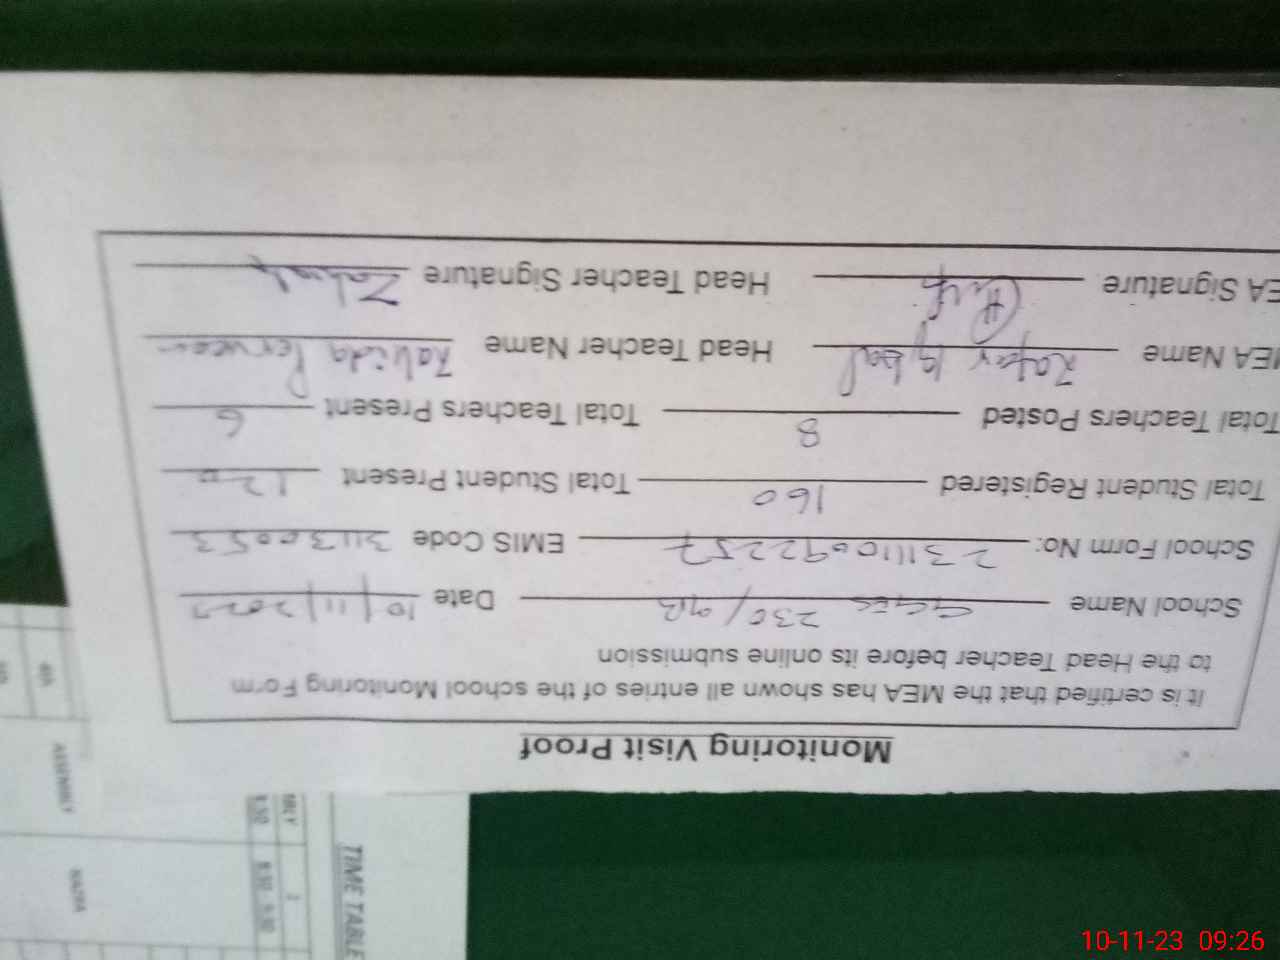 Monitoring Visit Proof
It is certified that the MEA has shown all entries of the school Monitoring Form
to the Head Teacher before its online submission
School Name GGES 230/9R Date 10/11/2023
School Form No: 23111009 2257 EMIS Code 31130053
Total Student Registered 160 Total Student Present 120
Total Teachers Posted 8 Total Teachers Present 6
MEA Name Zafar Iqbal Head Teacher Name Zahida Perveen
EA Signature Head Teacher Signature Zahida
TIME TABLE
ASSEMBLY
10-11-23 09:26